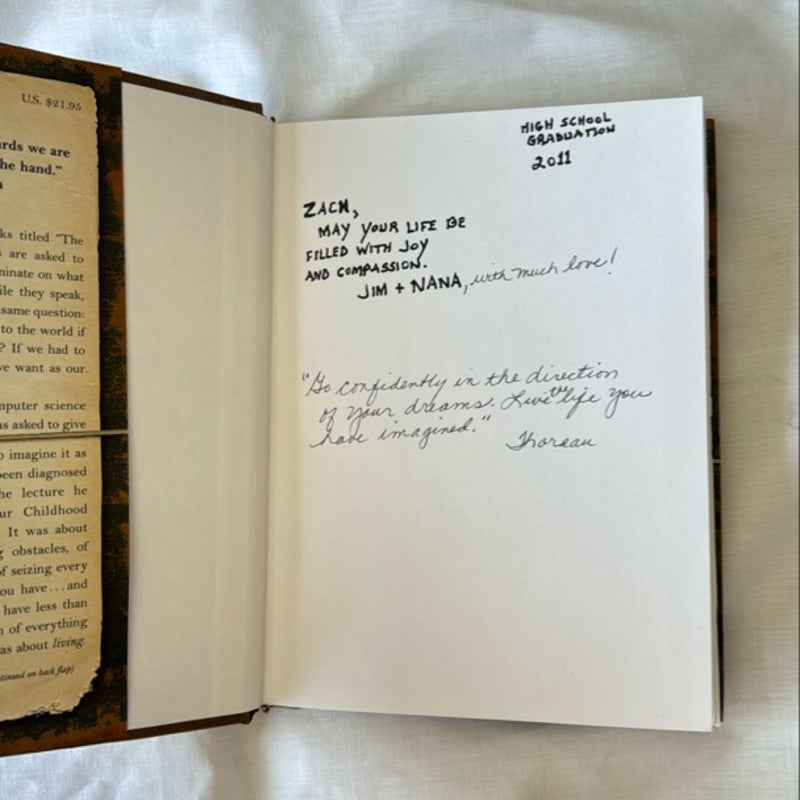 U.S. $21.95
rds we are
he hand."
ks titled "The
are asked to
minate on what
ile they speak,
same question:
to the world if
? If we had to
we want as our
mputer science
as asked to give
o imagine it as
been diagnosed
he lecture he
ur Childhood
. It was about
g obstacles, of
of seizing every
ou have...and
have less than
n of everything
as about living.
tinued on back flap)
HIGH SCHOOL
GRADUATION
2011
ZACH,
MAY YOUR LIFE BE
FILLED WITH JOY
AND COMPASSION.
JIM + NANA, with much love!
"Go confidently in the direction
of your dreams. Live the life you
have imagined."
Thoreau